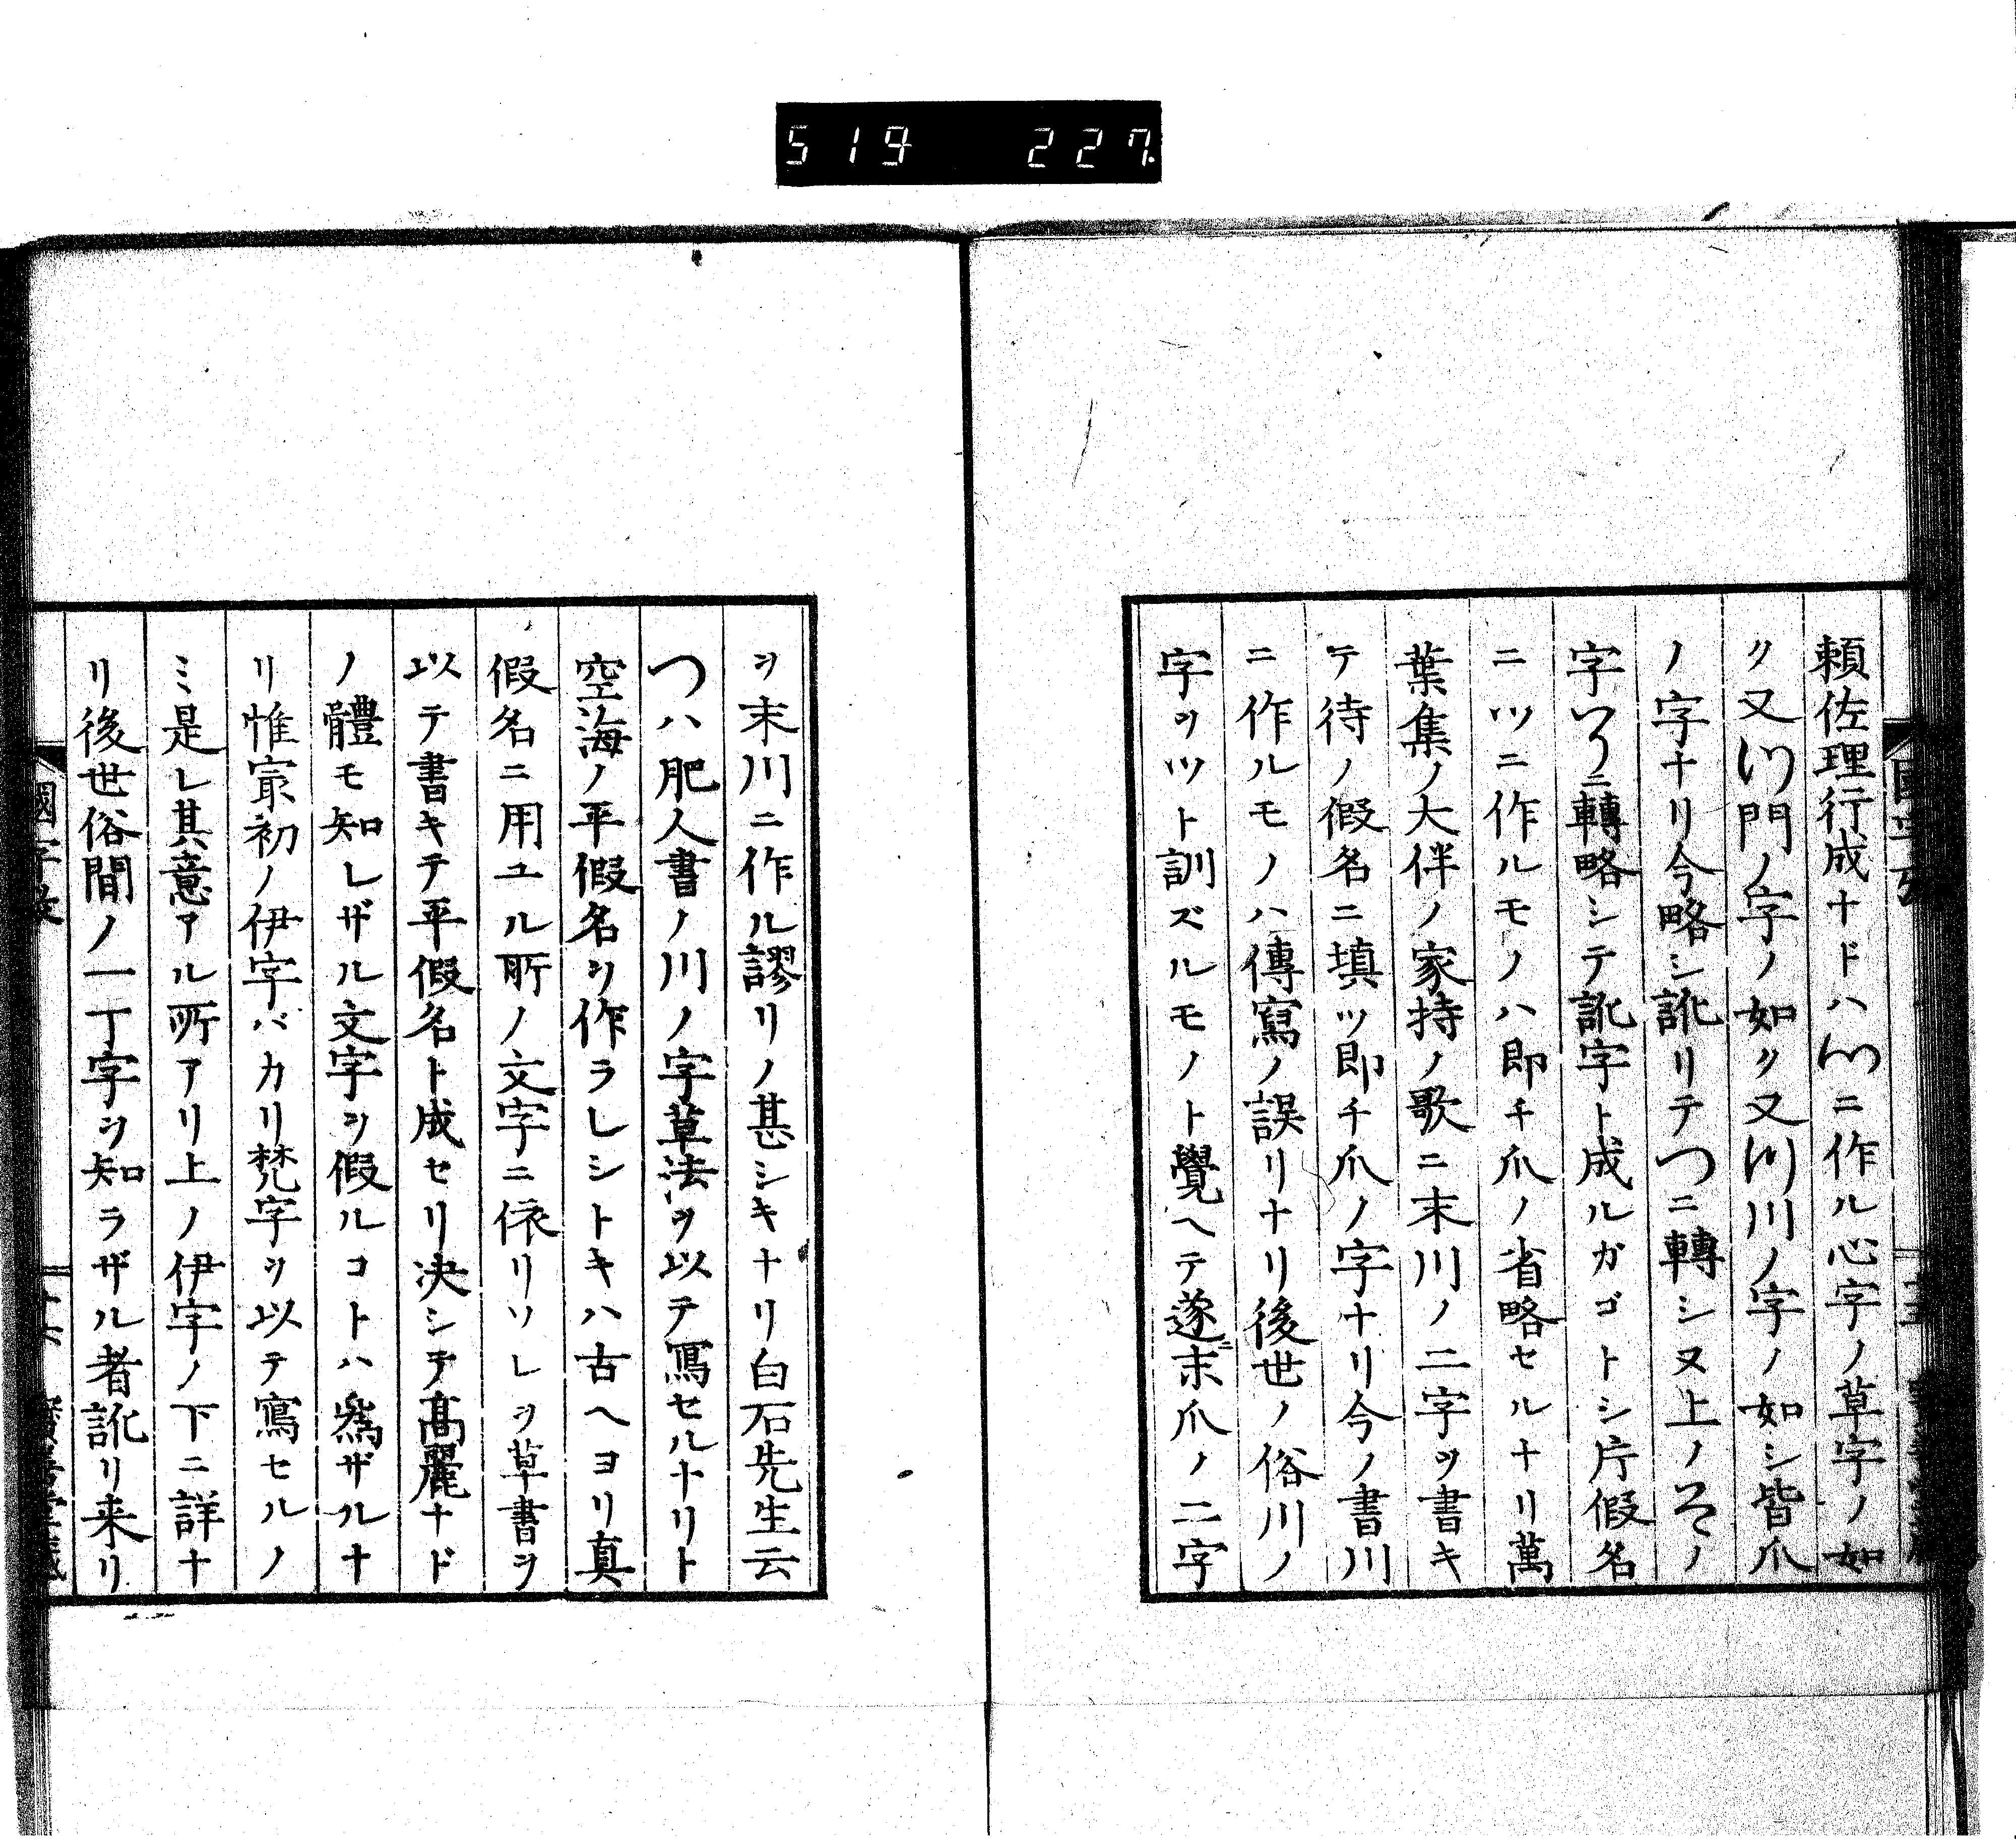 519 227
頼佐理行成ナドハ㣺ニ作ル心字ノ草字ノ如
ク又門ノ字ノ如ク又川ノ字ノ如シ皆爪
ノ字ナリ今略シ訛リテつニ轉シヌ上ノそノ
字ニ轉略シテ訛字ト成ルガゴトシ片假名
ニツニ作ルモノハ即チ爪ノ省略セルナリ萬
葉集ノ大伴ノ家持ノ歌ニ末川ノ二字ヲ書キ
テ待ノ假名ニ填ツ即チ爪ノ字ナリ今ノ書川
ニ作ルモノハ傳寫ノ誤リナリ後世ノ俗川ノ
字ヲツト訓ズルモノト覺ヘテ遂ニ末爪ノ二字
ヲ末川ニ作ル謬リノ甚シキナリ白石先生云
つハ肥人書ノ川ノ字草法ヲ以テ寫セルナリト
空海ノ平假名ヲ作ラレシトキハ古ヘヨリ真
假名ニ用ユル所ノ文字ニ依リソレヲ草書ヲ
以テ書キテ平假名ト成セリ决シテ髙麗ナド
ノ體モ知レザル文字ヲ假ルコトハ為ザルナ
リ惟冣初ノ伊字バカリ梵字ヲ以テ寫セルノ
ミ是レ其意アル所アリ上ノ伊字ノ下ニ詳ナ
リ後世俗間ノ一丁字ヲ知ラザル者訛リ来リ